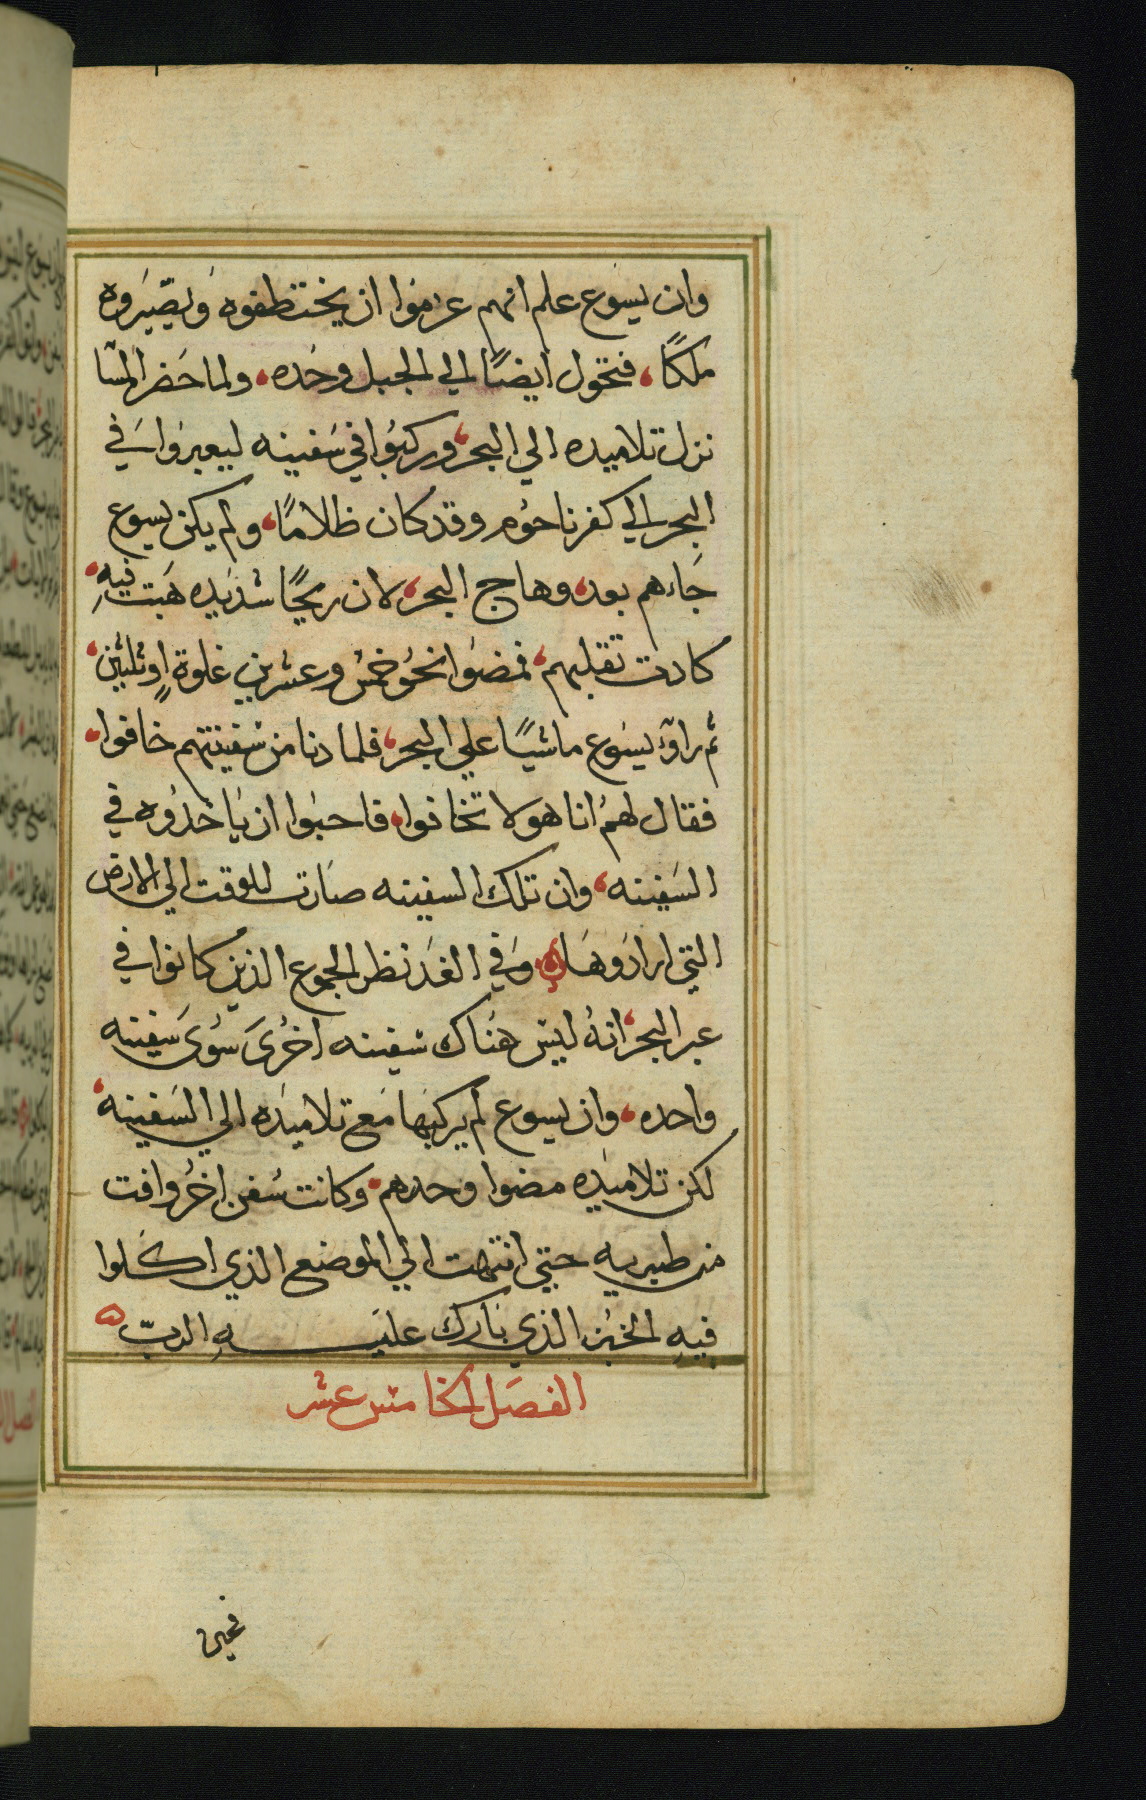 وان يسوع علم انهم عزموا ان يختطفوه ويصيّروه
ملكًا، فتحول ايضًا الي الجبل وحده، ولما حضر المسا
نزل تلاميده الي البحر، وركبوا في سفينه ليعبروا في
البحر الي كفرناحوم وقد كان ظلامًا، ولم يكن يسوع
جاءهم بعد، وهاج البحر، لان ريحًا شديده هبت فيه،
كادت تقلبهم، فمضوا نحو خمس وعشرين غلوة او ثلثين،
ثم راوا يسوع ماشيًا علي البحر، فلما دنا من سفينتهم خافوا،
فقال لهم انا هو لا تخافوا، فاحبوا ان ياخذوه في
السفينه، وان تلك السفينه صارت للوقت الي الارض
التي ارادوها ۞ وفي الغد نظر الجموع الذين كانوا في
عبر البحر، انه ليس هناك سفينه اخرى سوى سفينه
واحده، وان يسوع لم يركبها مع تلاميده الي السفينه،
لكن تلاميده مضوا وحدهم، وكانت سفن اخر وافت
من طبريه حتي انتهت الي الموضع الذي اكلوا
فيه الخبز الذي بارك عليه الربّ ه
الفصل الخامس عشر
فحين